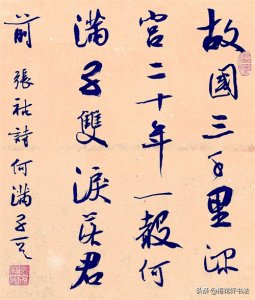 故國三千里深
宮二十年一聲何
滿子雙淚落君
前 張祜詩何滿子
头条 @梅花轩书法